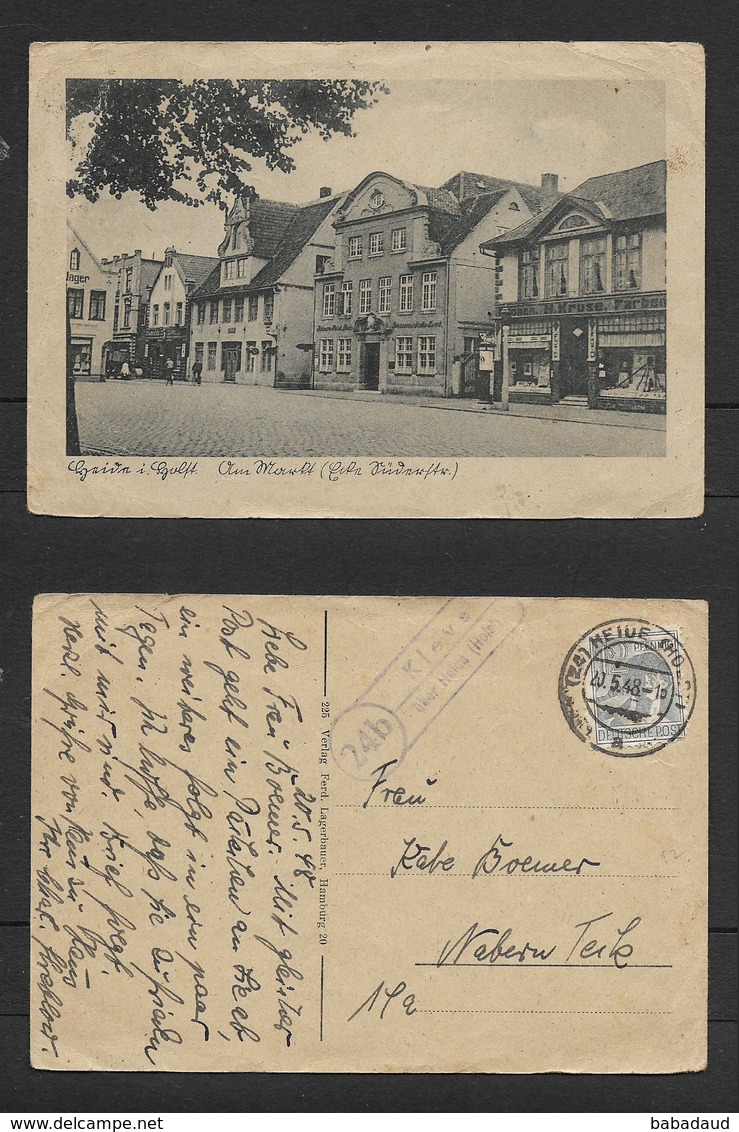 lager
N. Kruse. Farben
Heide i. Holst. Am Markt (Ecke Süderstr.)
20.5.48
Liebe Frau Boemer. Mit gleicher
Post geht ein Päckchen an Sie ab,
ein weiteres folgt in ein paar
Tagen. Ich hoffe, daß Sie zufrieden
mit mir sind. Brief folgt.
Herzl. Grüße von Haus zu Haus
Ihr
225 Verlag Ferd. Lagerbauer, Hamburg 20
24b
Kleve
über Heide (Holst)
(24) HEIDE (HOLST)
20.5.48.-18
a
PFENNIG
DEUTSCHE POST
Frau
Käte Boemer
Nabern Teck
14a
12
babadaud